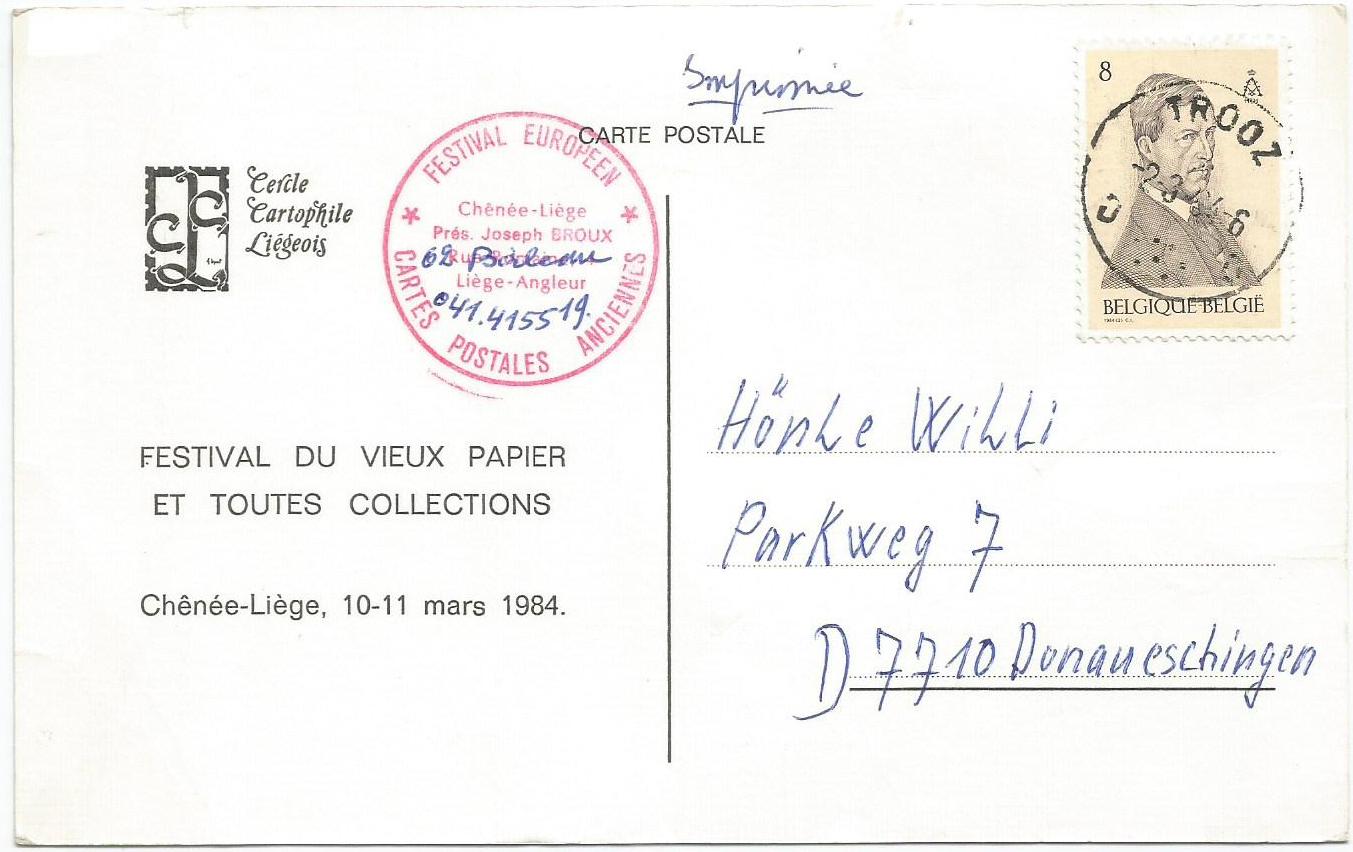 Imprimée
CARTE POSTALE
8
TROOZ
BELGIQUE-BELGIË
Cercle
Cartophile
Liégeois
FESTIVAL EUROPEEN
Chênée-Liège
Prés. Joseph BROUX
62
Liège-Angleur
041.415519.
CARTES POSTALES ANCIENNES
FESTIVAL DU VIEUX PAPIER
ET TOUTES COLLECTIONS
Chênée-Liège, 10-11 mars 1984.
Hönle Willi
Parkweg 7
D 7710 Donaueschingen